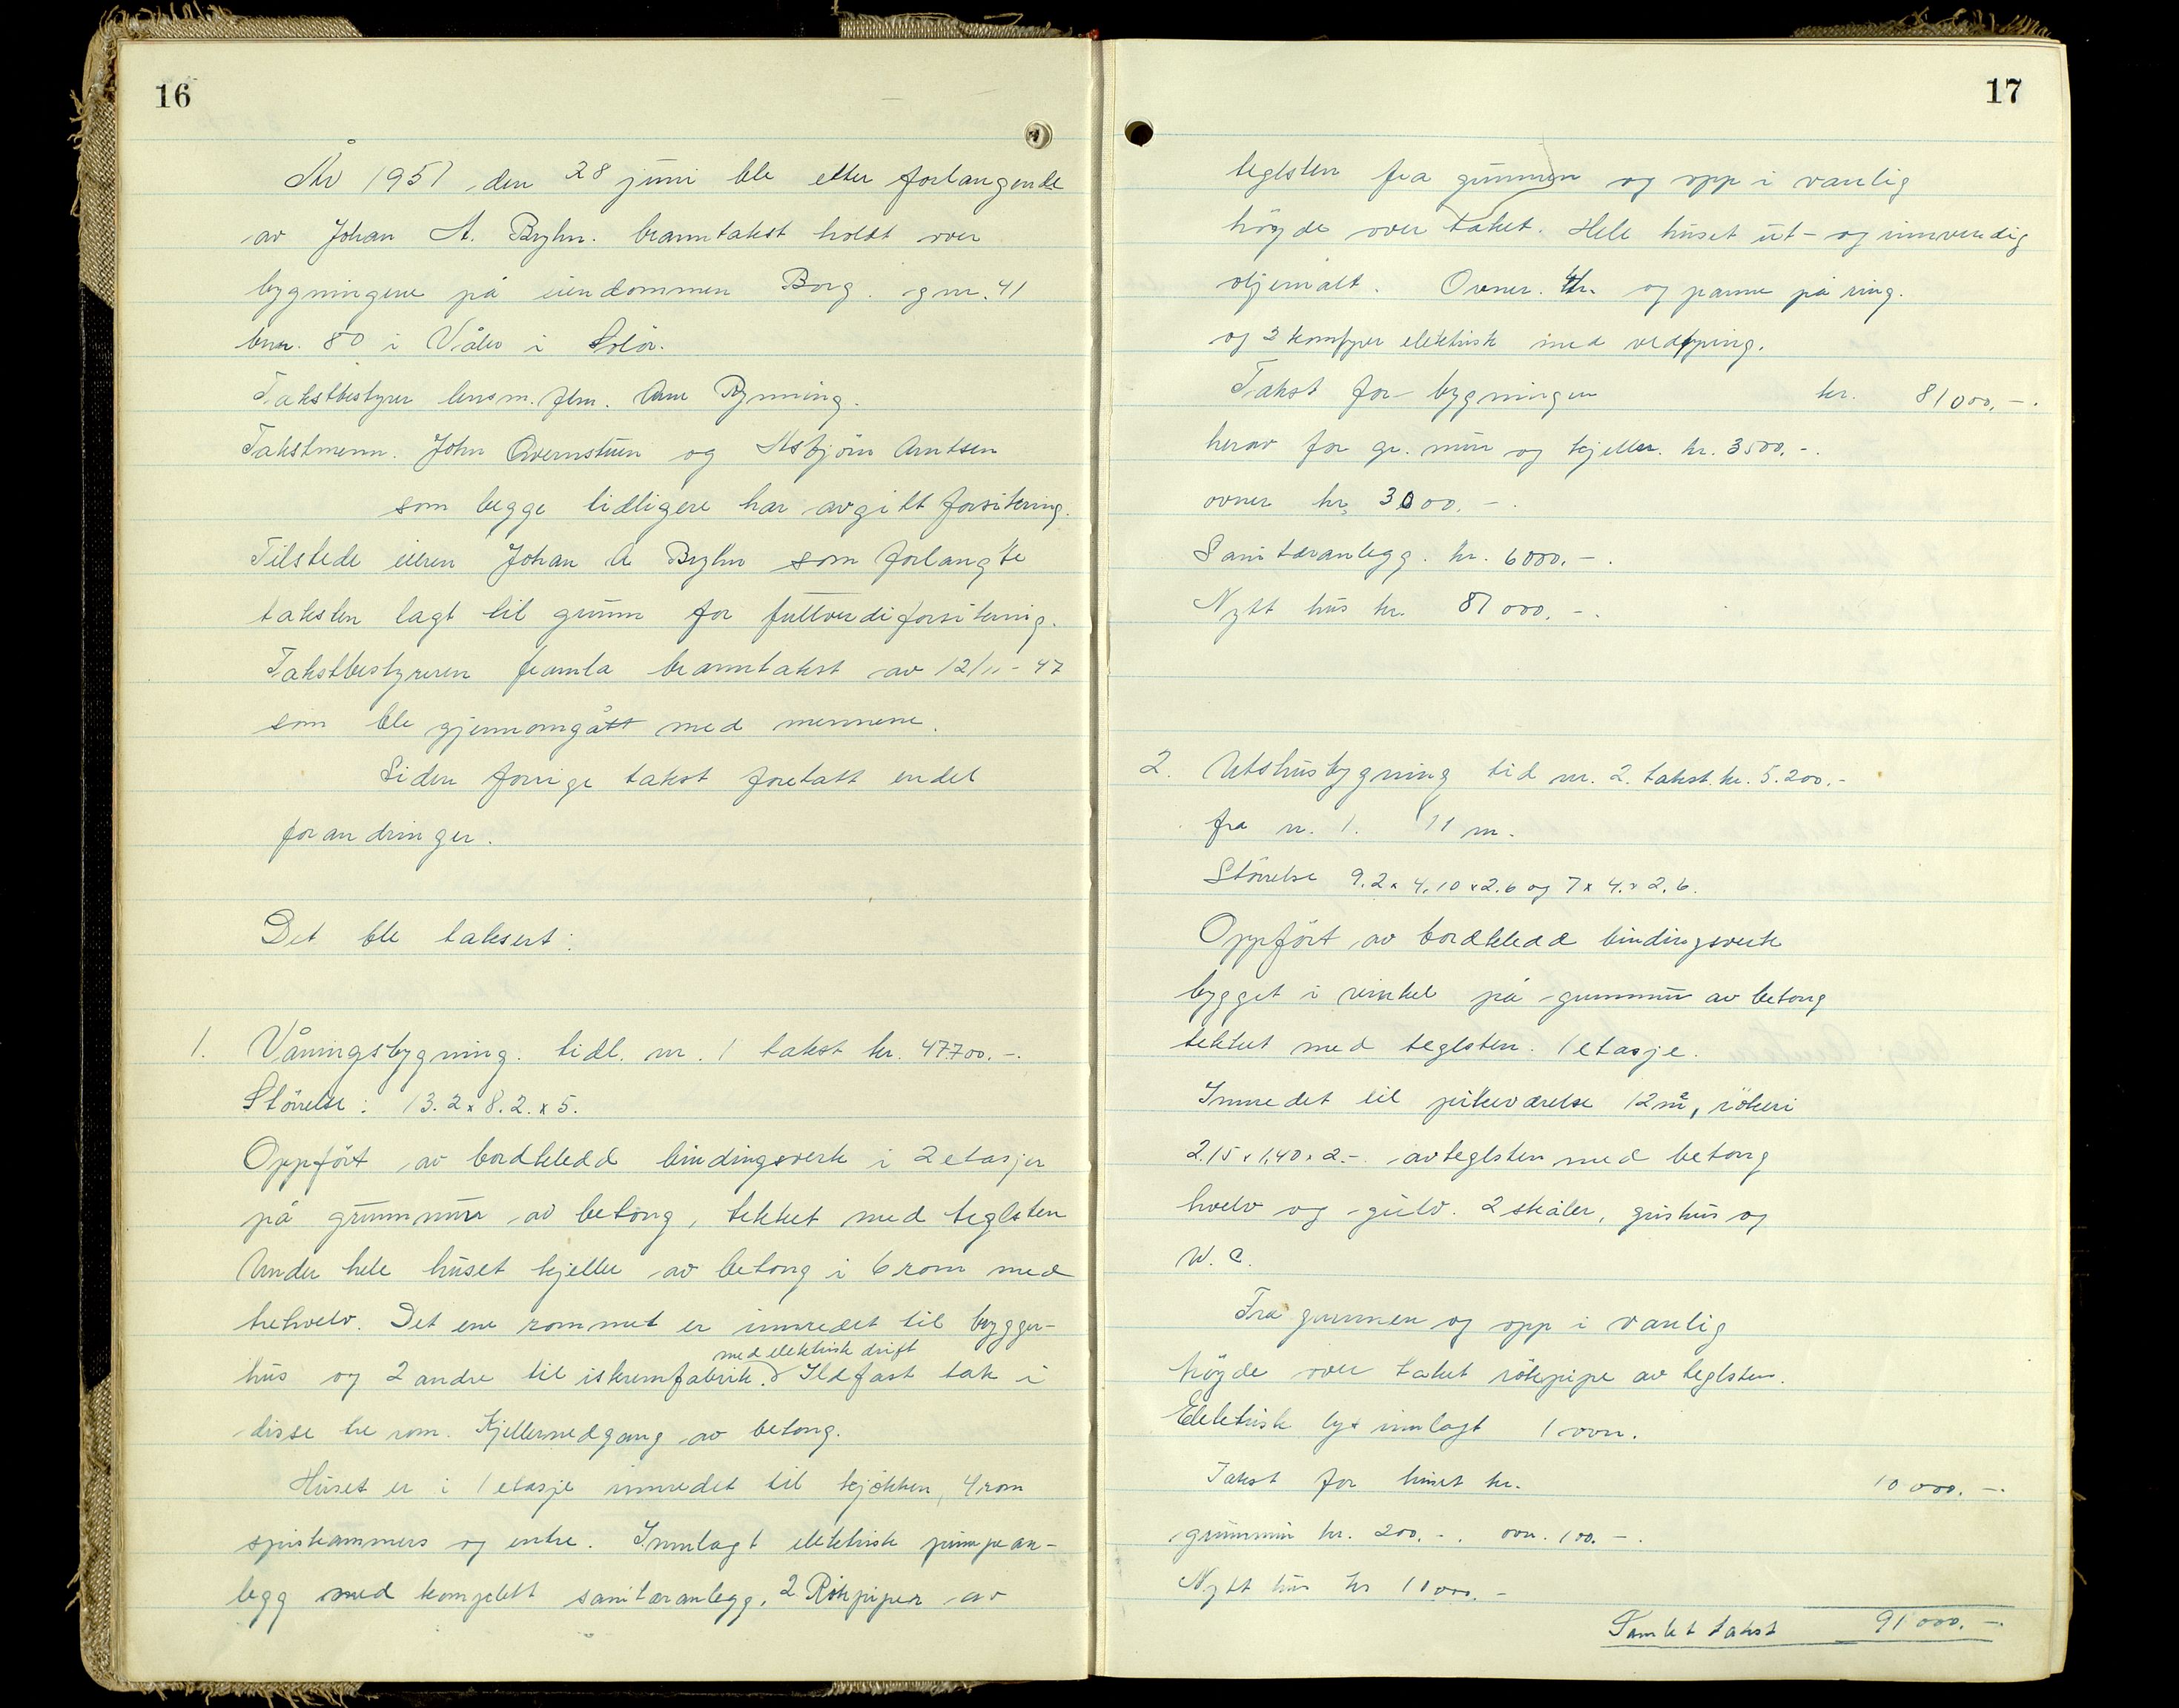 16
År 1951 den 28 juni ble etter forlangende
av Johan A. Bryhn. branntakst holdt over
bygningene på eiendommen Borg. gnr. 41
bnr. 80 i Våler i Solør.
Takstbestyrer lensm. flm. Arne Rynning.
Takstmenn. John Qvernstuen og Asbjörn Arntsen
som begge tidligere har avgitt forsikring.
Tilstede eieren Johan A Bryhn som forlangte
taksten lagt til grunn for fullverdiforsikring.
Takstbestyreren framla branntakst av 12/11-47
som ble gjennomgått med mennene.
Siden forrige takst foretatt endel
forandringer.
Det ble taksert:
1. Våningsbygning. tidl. nr. 1 takst kr. 47700.-.
Störrelse: 13.2 x 8.2. x 5.
Oppfört av bordkledd bindingsverk i 2 etasjer
på grunnmur av betong, tekket med teglsten
Under hele huset kjeller av betong i 6 rom med
trehvelv. Det ene rommet er innredet til brygger-
med elektrisk drift
hus og 2 andre til iskremfabrik. Ildfast tak i
disse tre rom. Kjellernedgang av betong.
Huset er i 1 etasje innredet til kjökken, 4 rom
spiskammers og entre. Innlagt elektrisk pumpean-
legg med komplett sanitæranlegg. 2 Rökpiper av
17
teglsten fra grunnen og opp i vanlig
höyde over taket. Hele huset ut- og innvendig
oljemalt. Ovner. og panne på ring.
og 2 komfyrer elektrisk med vedfyring.
Takst for bygningen kr. 81000.-.
herav for gr. mur og kjeller. kr. 3500.-.
ovner kr. 3000.-.
Sanitæranlegg. kr. 6000.-.
Nytt hus kr. 81000.-.
2. Uthusbygning tid nr. 2. takst. kr. 5.200.-
fra nr. 1. 11 m.
Störrelse 9.2 x 4.10 x 2.6 og 7 x 4. x 2.6.
Oppfört av bordkledd bindingsverk
bygget i vinkel på grunnmur av betong
tekket med teglsten. 1 etasje.
Innredet til pikeværelse 12 m², rökeri
2.15 x 1.40 x 2.- av teglsten med betong
hvelv og gulv. 2 skåler, grishus og
W.C.
Fra grunnen og opp i vanlig
höyde over taket rökpipe av teglsten.
Elektrisk lys innlagt 1 ovn.
Takst for huset kr. 10 000.-.
grunnmur kr. 200.-. ovn. 100.-.
Nytt hus kr 11000.-
Samlet takst 91 000.-.